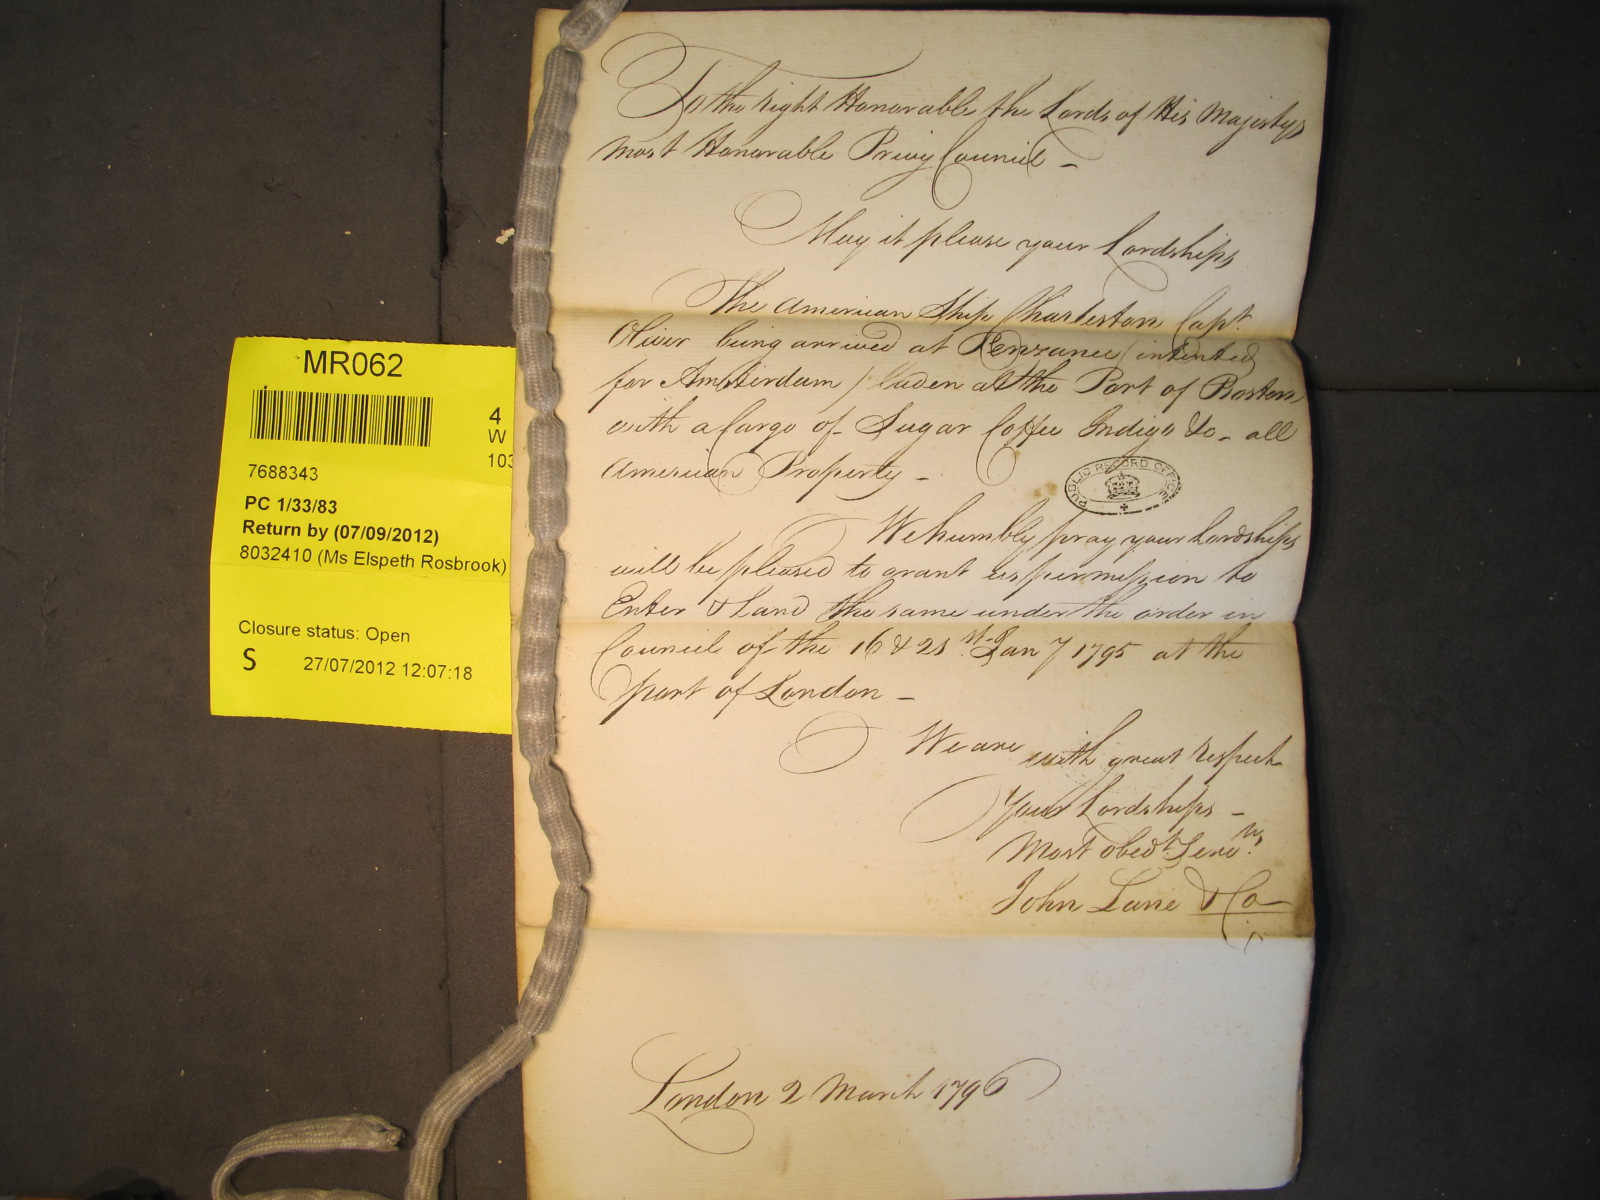 To the right Honorable the Lords of His Majestys
most Honorable Privy Council -
May it please your Lordships
The American Ship Charleston Capt.
Oliver being arrived at Penzance (intented
for Amsterdam) laden at the Port of Boston
with a Cargo of Sugar Coffee Indigo &c - all
American Property -
We humbly pray your Lordships
will be pleased to grant us permission to
Enter & Land the same under the order in
Council of the 16 & 21st Jany 1795 at the
port of London -
We are with great respect
Your Lordships -
Most obedt. Servts.
John Lane & Co
London 2 March 1796
PUBLIC RECORD OFFICE
MR062
4
W
103
7688343
PC 1/33/83
Return by (07/09/2012)
8032410 (Ms Elspeth Rosbrook)
Closure status: Open
S 27/07/2012 12:07:18